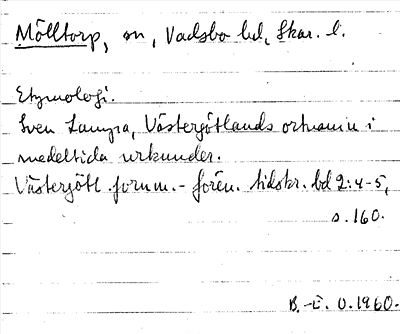 Mölltorp, sn, Vadsbo hd, Skar. l.
Etymologi.
Sven Lampa, Västergötlands ortnamn i
medeltida urkunder.
Västergötl. fornm.-fören. tidskr. bd 2:4-5,
s. 160.
B.-E. O. 1960.